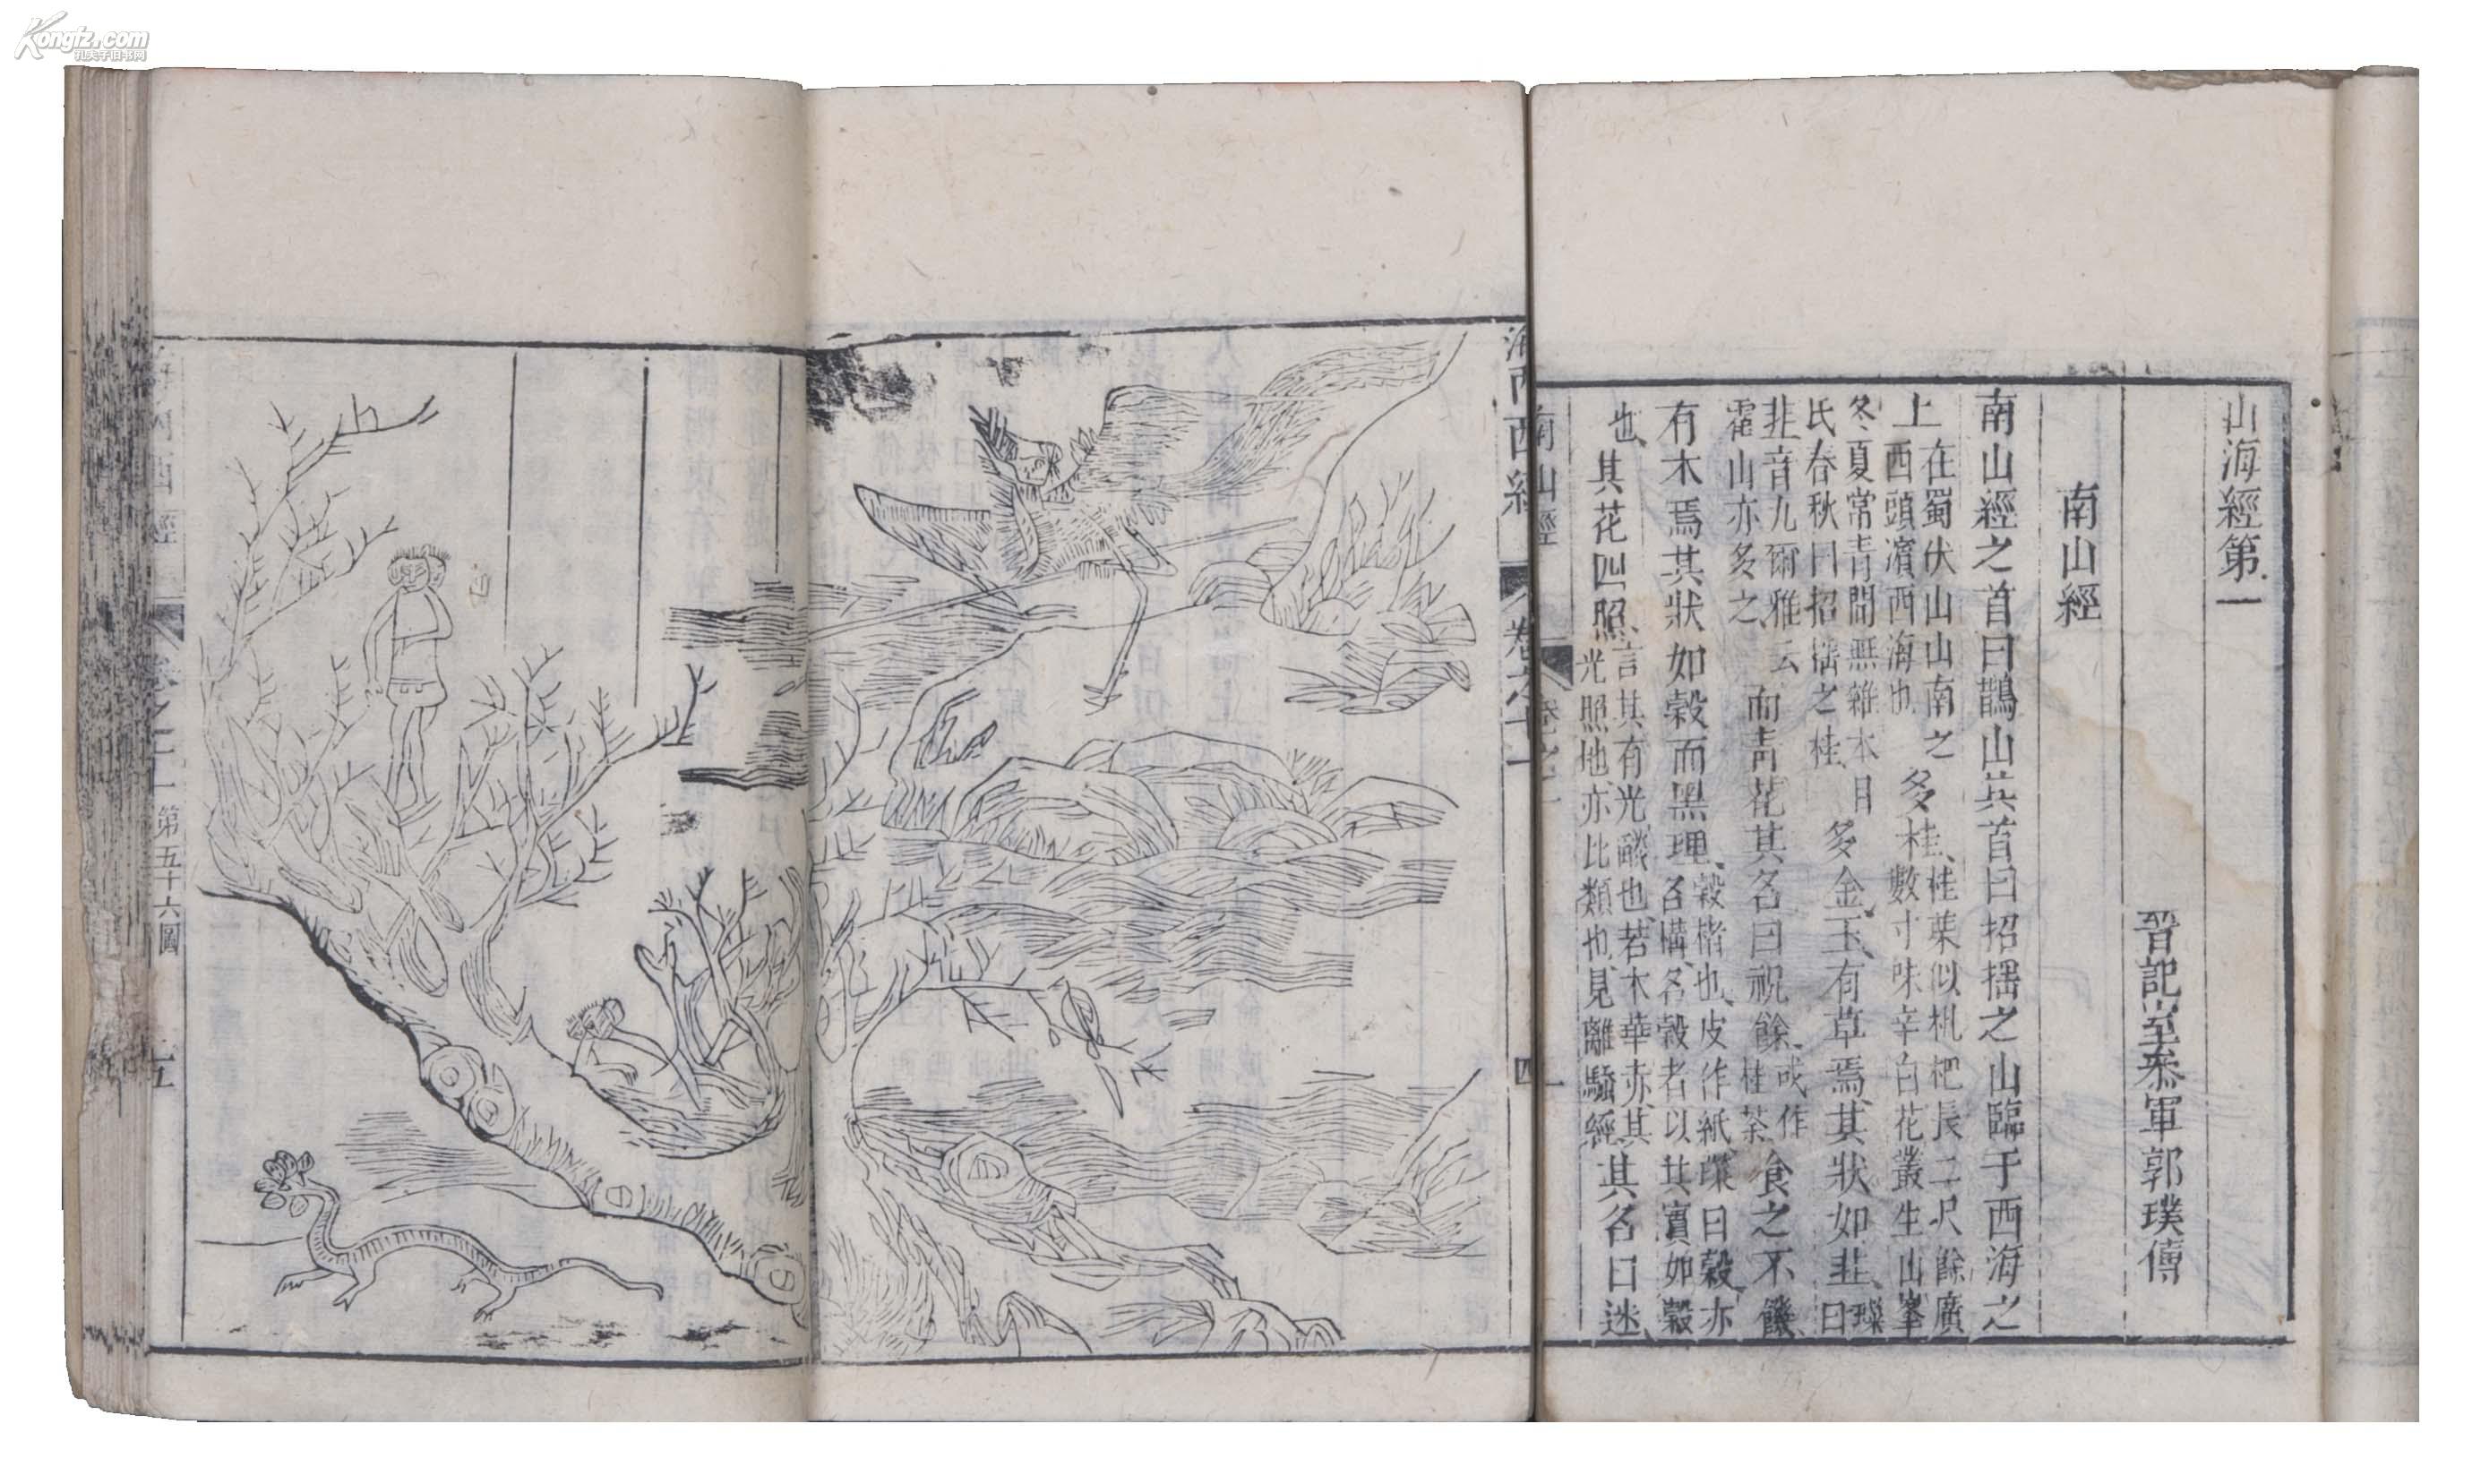 山海經第一
晉記室參軍郭璞傳
南山經
南山經之首曰䧿山其首曰招搖之山臨于西海之
上在蜀伏山山南之西頭濱西海也多桂桂葉似枇杷長二尺餘廣數寸味辛白花叢生山峯
冬夏常青間無雜木呂氏春秋曰招搖之桂多金玉有草焉其狀如韭璨曰
韭音九爾雅云霍山亦多之而青花其名曰祝餘或作桂荼食之不饑
有木焉其狀如榖而黑理榖楮也皮作紙璨曰榖亦名構名榖者以其實如榖
也其花四照言其有光㷠也若木華赤其光照地亦此類也見離騷經其名曰迷
南山經 卷之一 一
海內西經 卷之十一 四
海內西經 卷之十一 第五十六圖 五
Kongfz.com
孔夫子旧书网